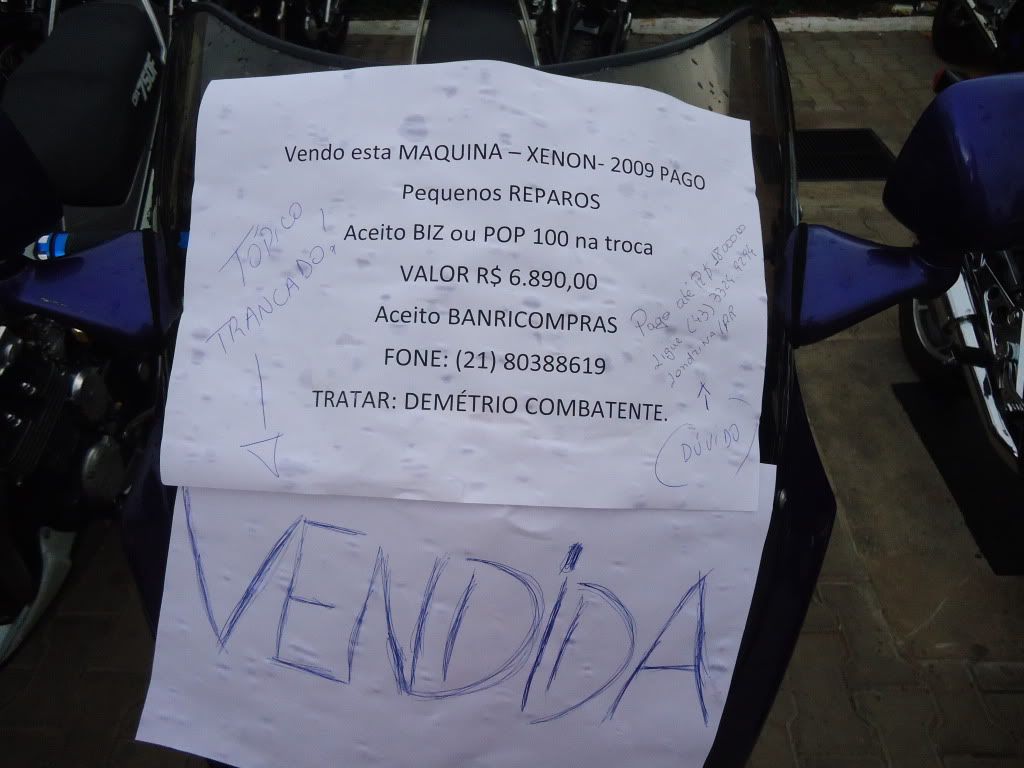 Vendo esta MAQUINA – XENON- 2009 PAGO
Pequenos REPAROS
Aceito BIZ ou POP 100 na troca
VALOR R$ 6.890,00
Aceito BANRICOMPRAS
FONE: (21) 80388619
TRATAR: DEMÉTRIO COMBATENTE.
TÓPICO
TRANCADO!
Pago até R$ 18.000,00
Ligue (43) 3324 4294
Londrina/PR
DÚVIDO
VENDIDA